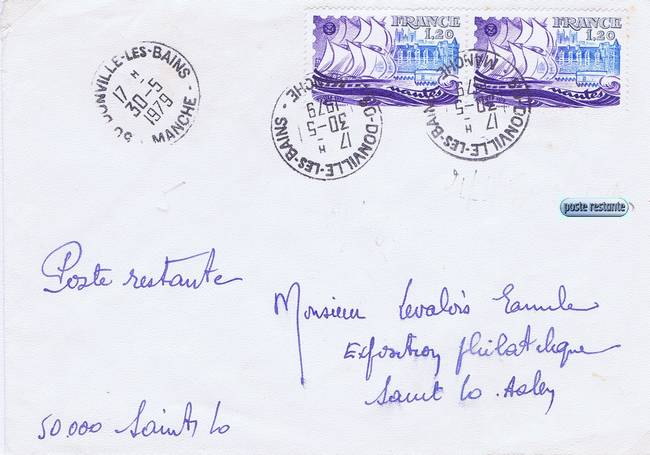 FRANCE
1,20
FRANCE
1,20
50 DONVILLE-LES-BAINS
17 H
30-5
1979
MANCHE
50-DONVILLE-LES-BAINS
17 H
30-5
1979
MANCHE
DONVILLE-LES-BAINS
17 H
30-5
MANCHE
poste restante
Poste restante
Monsieur Levalois
Exposition philatelique
Saint Lo
50.000 Saint Lo